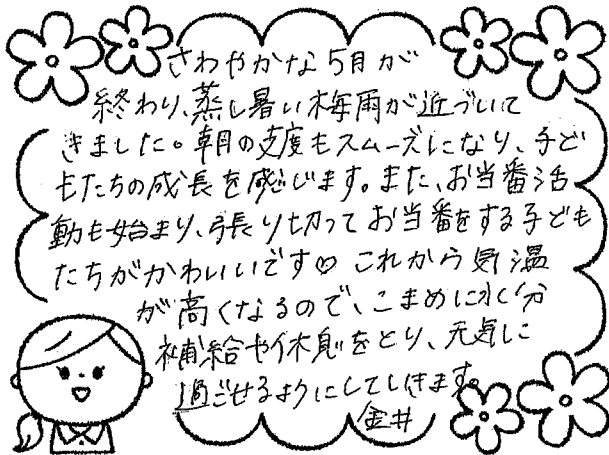 さわやかな5月が
終わり、蒸し暑い梅雨が近づいて
きました。朝の支度もスムーズになり、子ど
もたちの成長を感じます。また、お当番活
動も始まり、張り切ってお当番をする子ども
たちがかわいいです♡ これから気温
が高くなるので、こまめに水分
補給や休息をとり、元気に
過ごせるようにしていきます。
金井